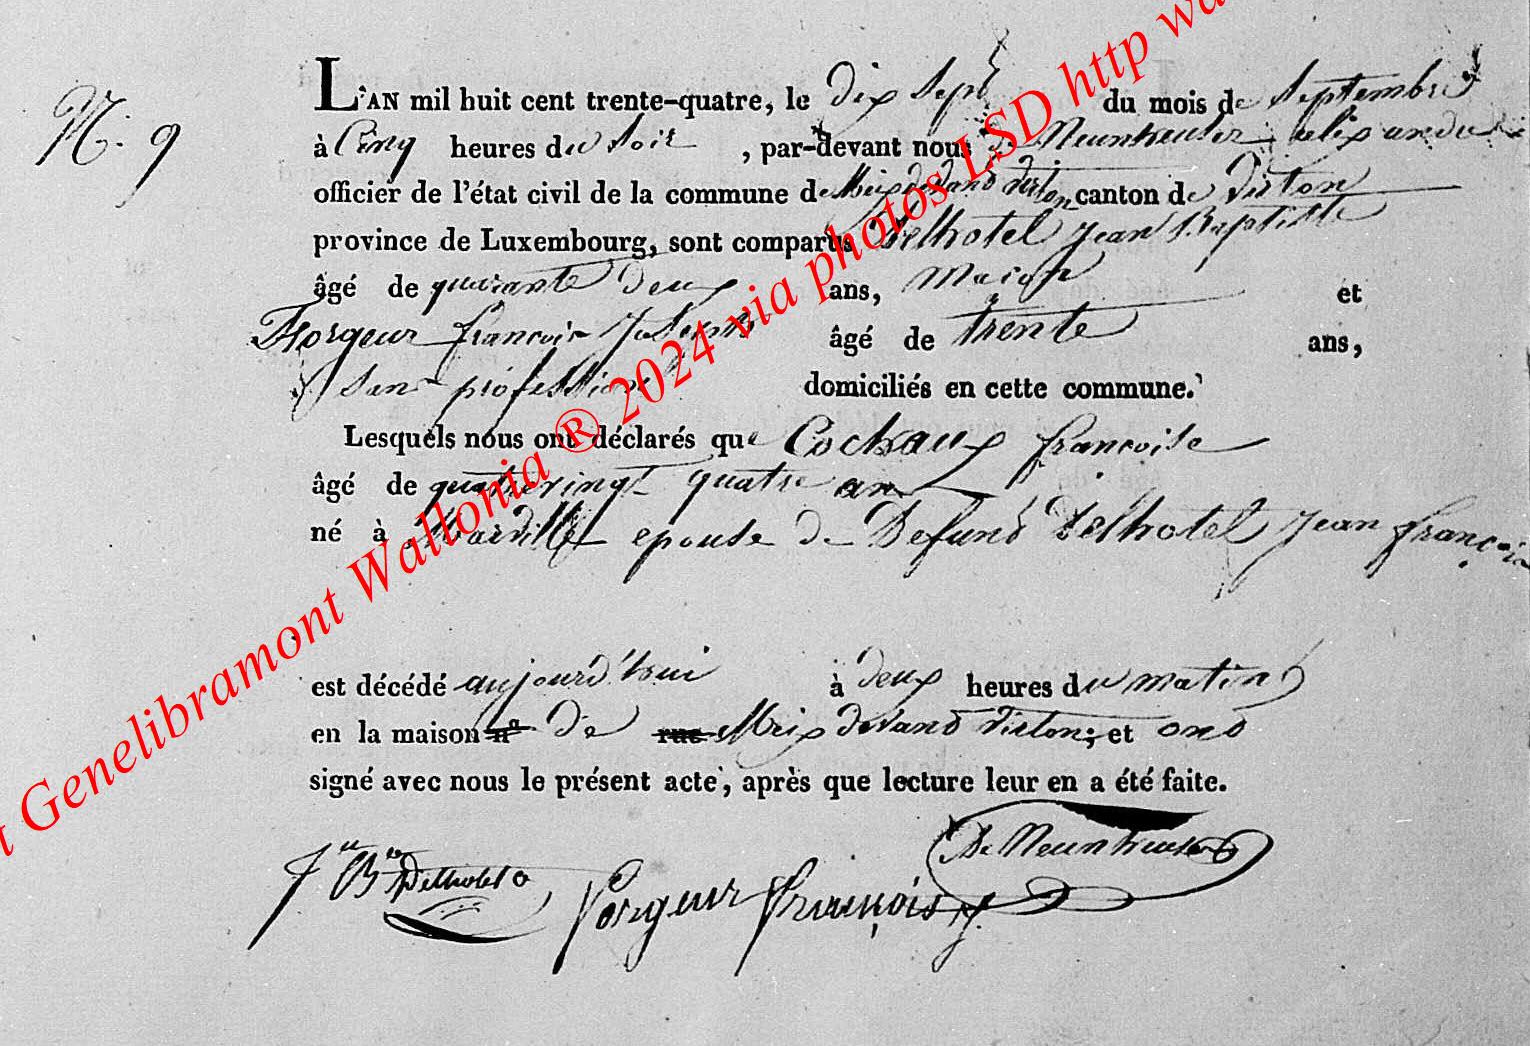 N. 9
L'AN mil huit cent trente-quatre, le dix sept du mois de septembre
à Cinq heures du soir , par-devant nous De Neunheuser alexandre
officier de l'état civil de la commune de Meix devand virton canton de virton
province de Luxembourg, sont comparus Delhotel jean Baptiste
âgé de quarante deux ans, maçon et
Forgeur françois âgé de trente ans,
san profession domiciliés en cette commune.
Lesquels nous ont déclarés que Cochaux françoise
âgé de quatrevingt quatre an
né à épouse de Defund Delhotel jean françois
est décédé aujourd'hui à deux heures du matin
en la maison n° de rue Meix devand virton; et ond
signé avec nous le présent acte, après que lecture leur en a été faite.
Jn Bte Delhotel Forgeur françois j. De Neunheuser
Genelibramont Wallonia ® 2024 via photos LSD http